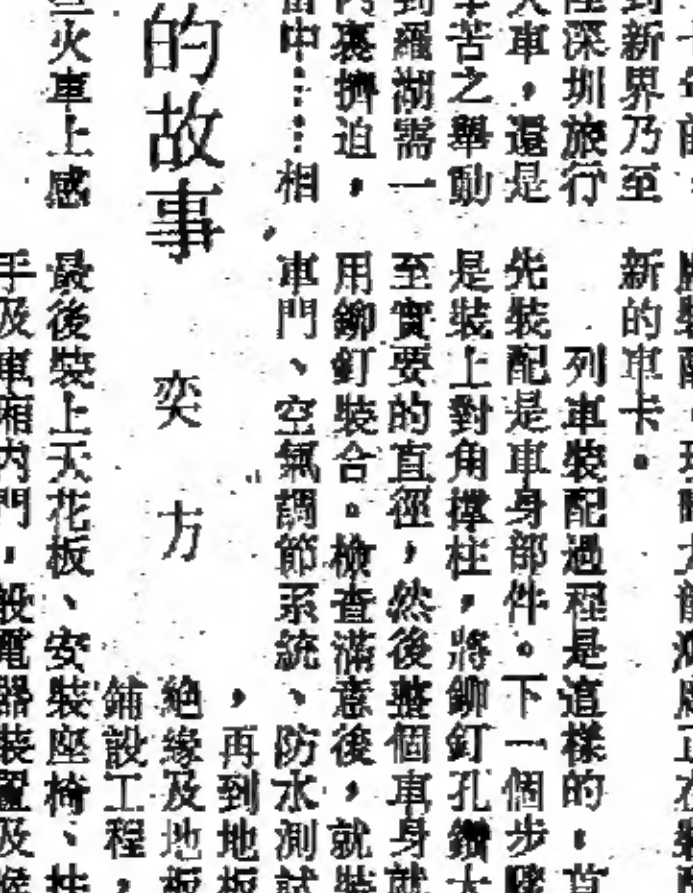 到新界乃至
深圳旅行
火車，還是
辛苦之舉動
到羅湖需一
內裏擠迫，
當中……相
的故事
奕方
三火車上感
新的車卡。
列車裝配過程是這樣的：首
先裝配是車身部件。下一個步驟
是裝上對角撑柱，將鉚釘孔鑽大
至實要的直徑，然後整個車身就
用鉚釘裝合。檢查滿意後，就裝
車門、空氣調節系統、防水測試
，再到地板
絕緣及地板
鋪設工程，
最後裝上天花板、安裝座椅、扶
手及車廂內門，般電器裝置及